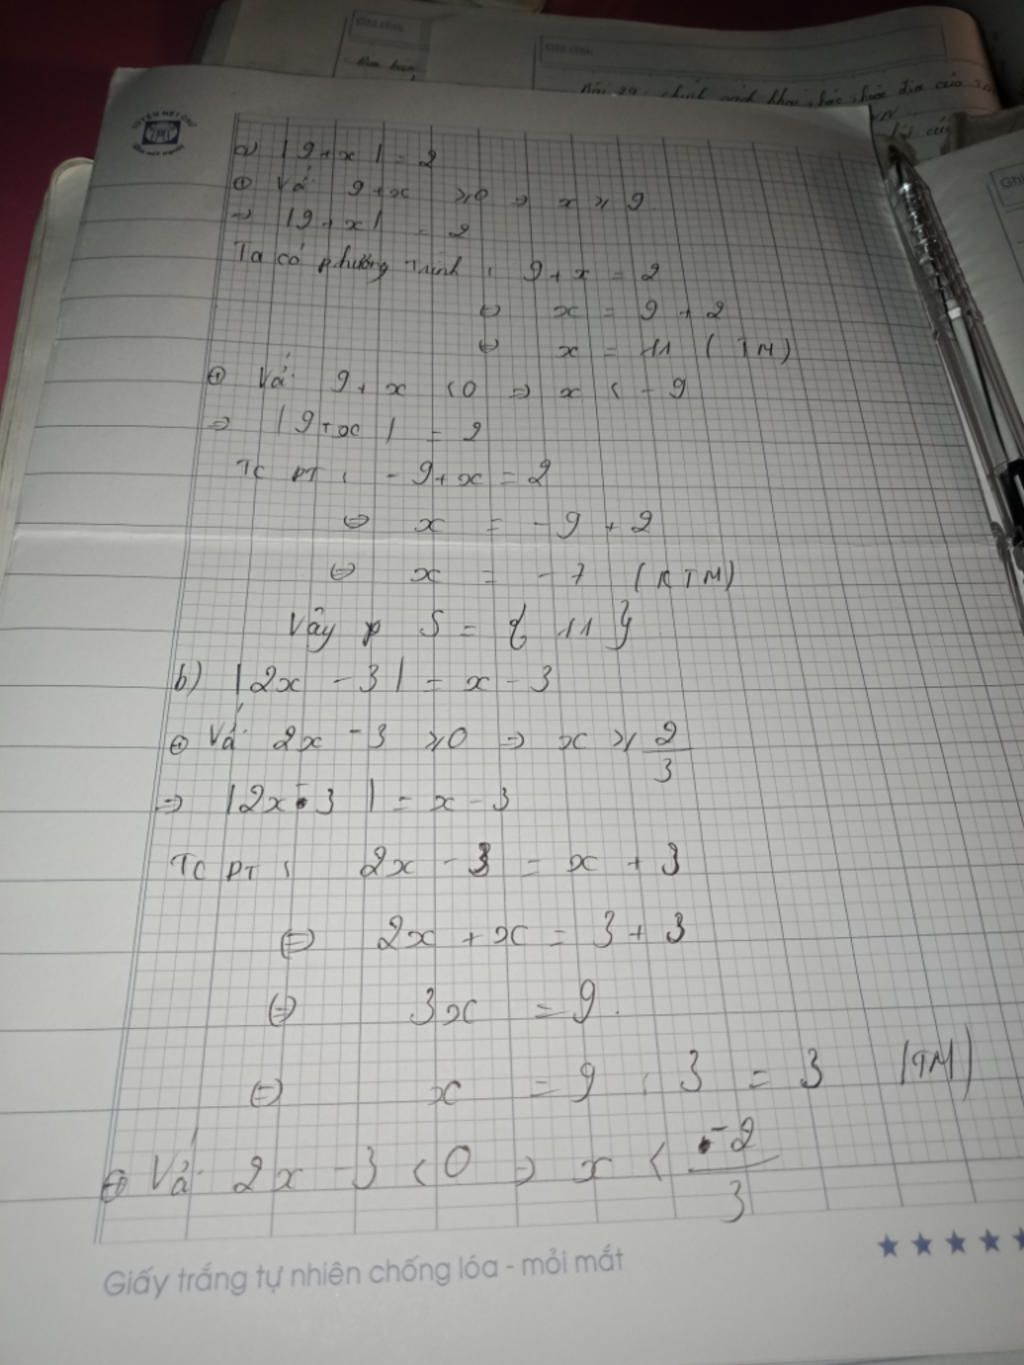 Ghi chú:
Ghi chú:
a) |9+x| = 2
⊕ Vớ: 9+x ≥0 ⇒ x ≥ 9
⇒ |9+x| = 2
Ta có phương trình: 9+x = 2
⇔ x = 9 + 2
⇔ x = 11 (TM)
⊕ Vớ: 9+x <0 ⇒ x < -9
⇒ |9+x| = 2
TC PT: -9+x = 2
⇔ x = -9 + 2
⇔ x = -7 (KTM)
Vây S = { 11 }
b) |2x - 3| = x - 3
⊕ Vớ: 2x - 3 ≥0 ⇒ x ≥ 2/3
⇒ |2x-3| = x - 3
TC PT: 2x - 3 = x + 3
⇔ 2x + x = 3 + 3
⇔ 3x = 9.
⇔ x = 9 : 3 = 3 (TM)
⊕ Vớ: 2x - 3 < 0 ⇒ x < -2/3
Giấy trắng tự nhiên chống lóa - mỏi mắt